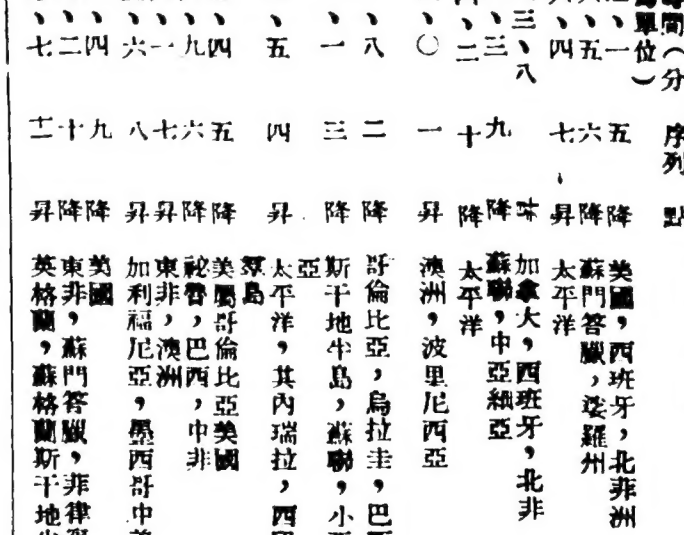 時間(分 序列 點
單位)
、一 五 降 美國,西班牙,北非洲
、五 六 降 蘇門答臘,婆羅州
、四 七 昇 太平洋
三、八 加拿大,西班牙,北非
、三 九 降 蘇聯,中亞細亞
、二 十 降 太平洋
、〇 一 昇 澳洲,波里尼西亞
、八 二 降 哥倫比亞,烏拉圭,巴
、一 三 降 斯干地半島,蘇聯,小
亞
、五 四 昇 太平洋,其內瑞拉,西
羣島
、四 五 降 美屬哥倫比亞美國
、九 六 降 祕魯,巴西,中非
、一 七 昇 東非,澳洲
、六 八 昇 加利福尼亞,墨西哥中美
、四 九 降 美國
、二 十 降 東非,蘇門答臘,非律
、七 十一 昇 英格蘭,蘇格蘭斯干地